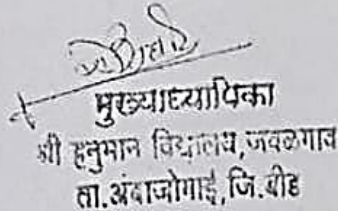 मुख्याध्यापिका
श्री हनुमान विद्यालय,जवळगाव
ता.अंबाजोगाई,जि.बीड